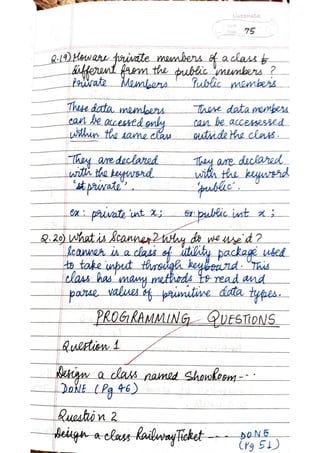 75
Q.19) How are private members of a class
different from the public members?
Private Members Public members
These data members These data members
can be accessed only can be accessessed
within the same class outside the class.
They are declared They are declared
with the keyword with the keyword
private". 'public'.
ex: private int x; ex: public int x;
Q.20) What is Scanner? Why do we use it?
Scanner is a class of utility package used
to take input through keyboard. This
class has many methods to read and
parse values of primitive data types.
PROGRAMMING QUESTIONS
Question 1
Design a class named ShowRoom---
DONE (Pg 46)
Question 2
Design a class RailwayTicket --- DONE
(Pg 51)